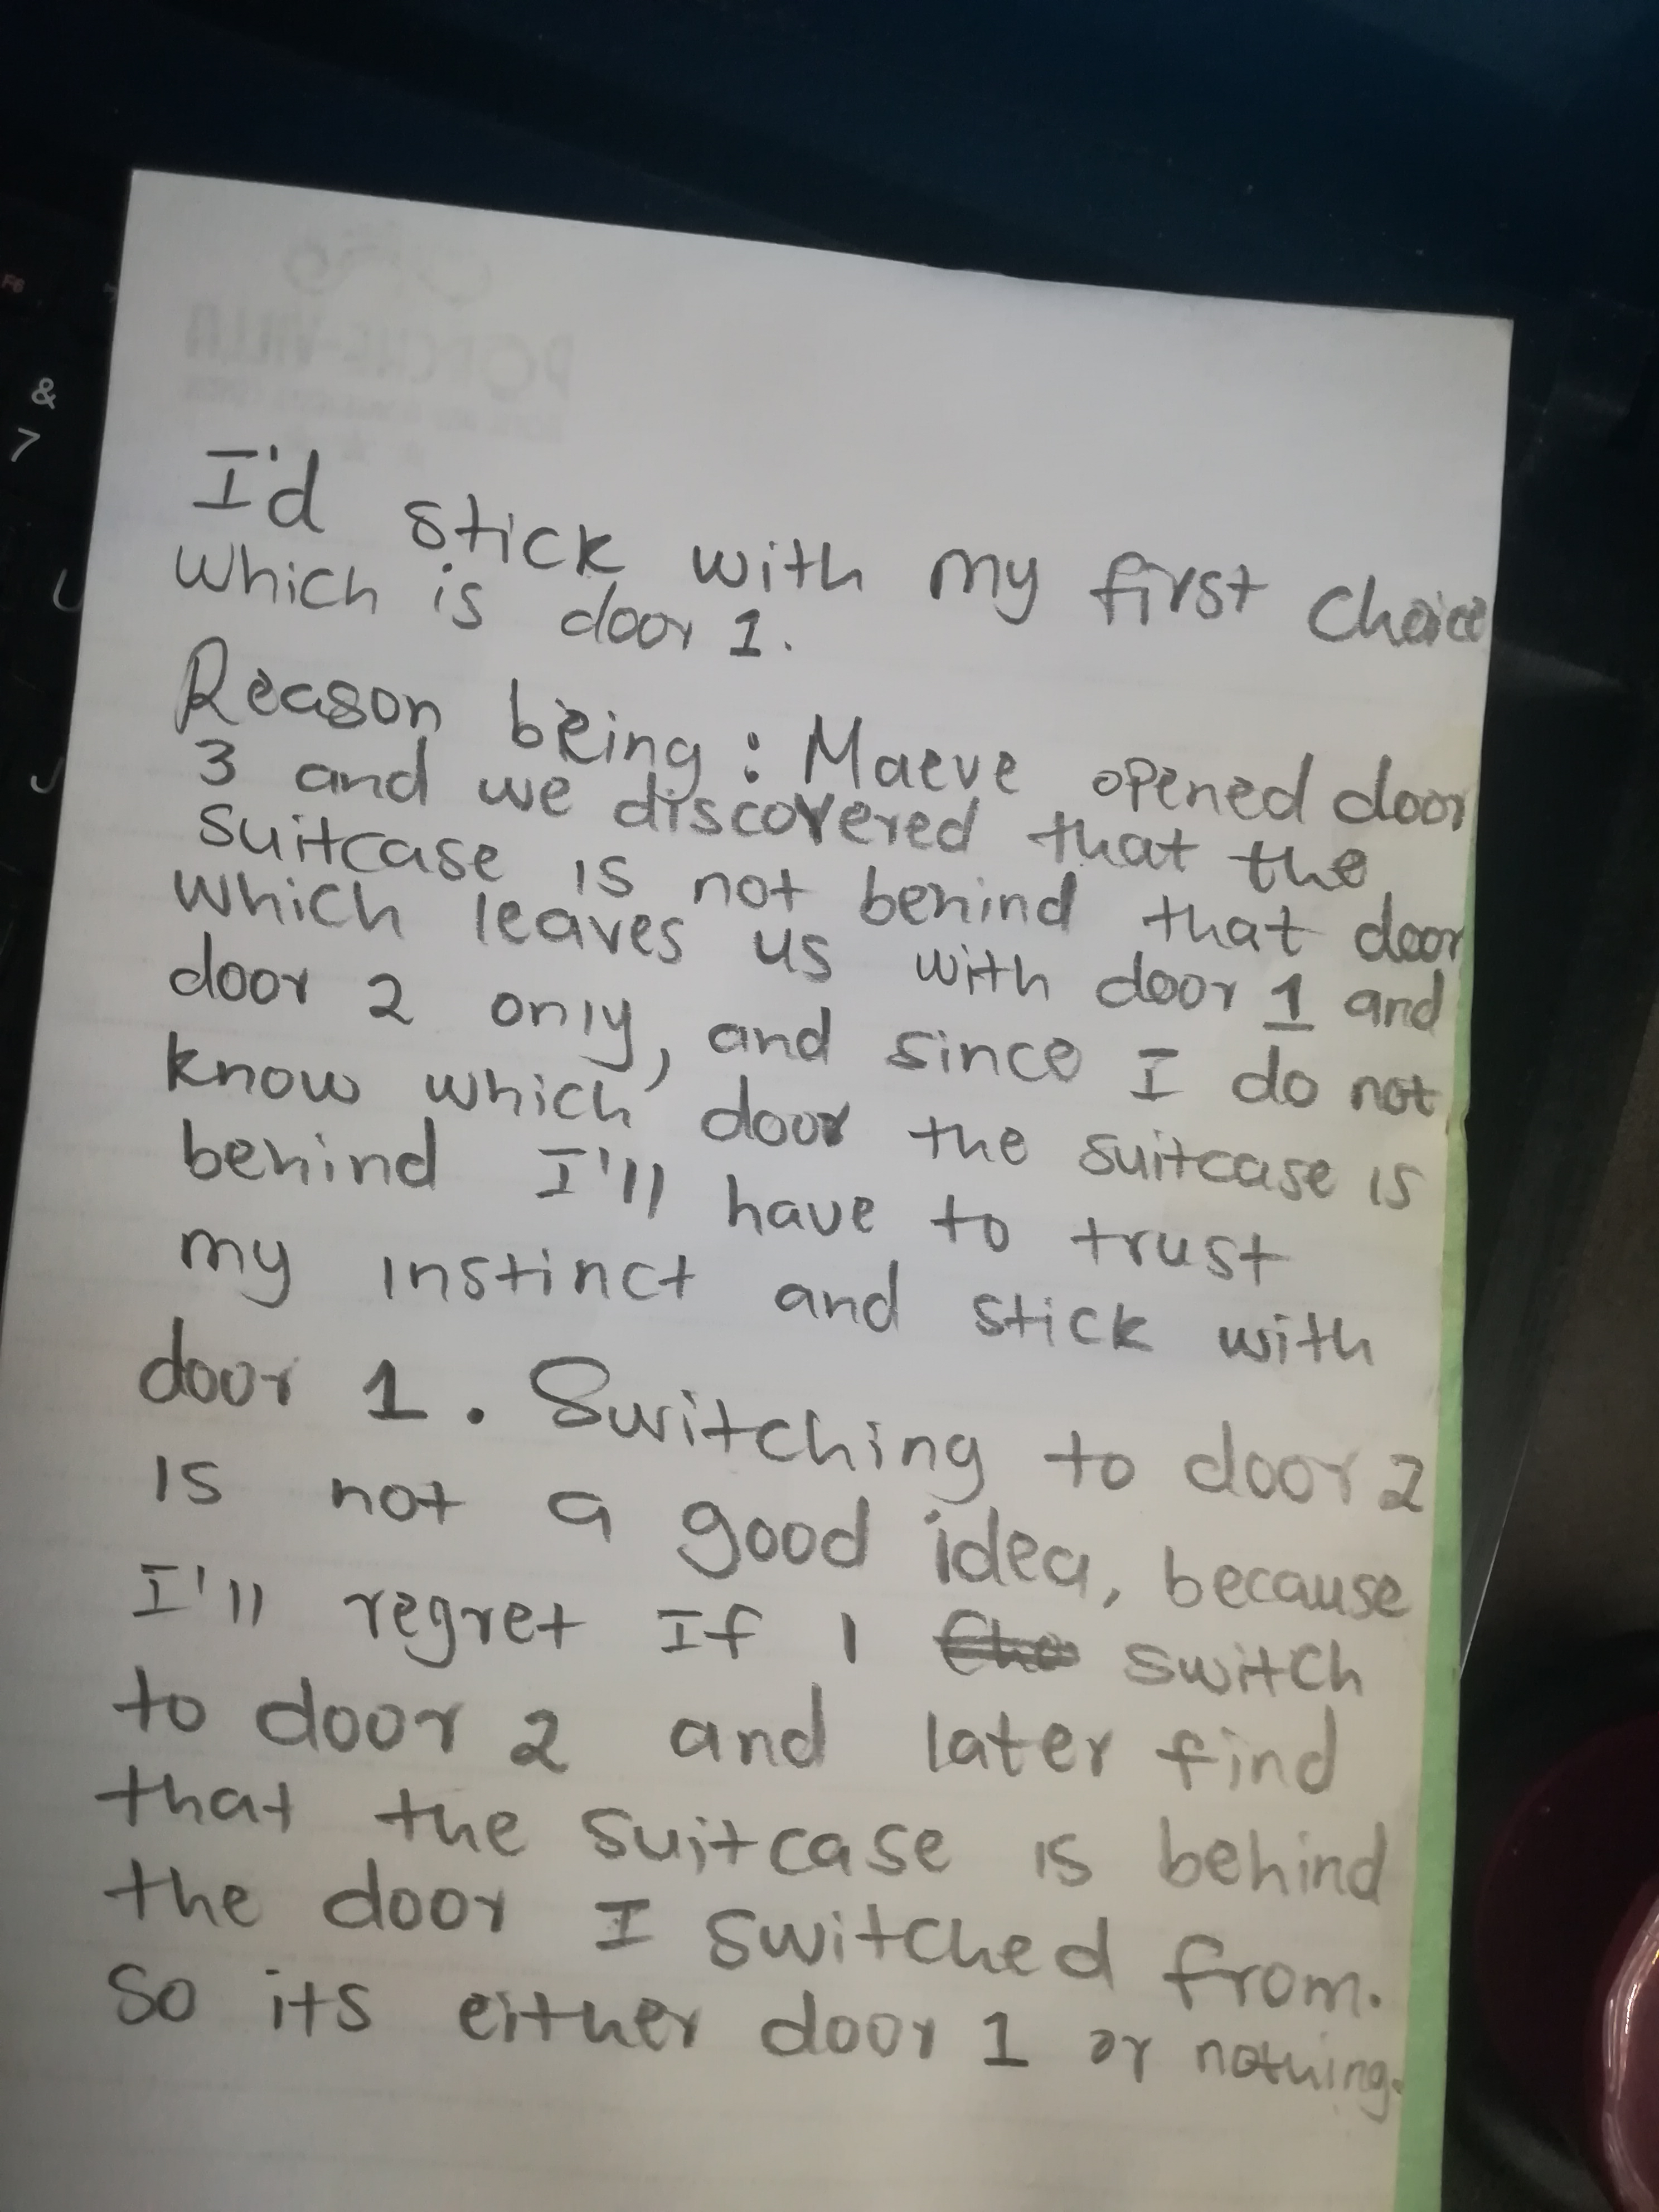 I'd stick with my first choice
which is door 1.
Reason being : Maeve opened door
3 and we discovered that the
suitcase is not behind that door
which leaves us with door 1 and
door 2 only, and since I do not
know which door the suitcase is
behind I'll have to trust
my instinct and stick with
door 1. Switching to door 2
is not a good idea, because
I'll regret If I switch
to door 2 and later find
that the suitcase is behind
the door I switched from.
So its either door 1 or nothing.
F6
&
7
U
J